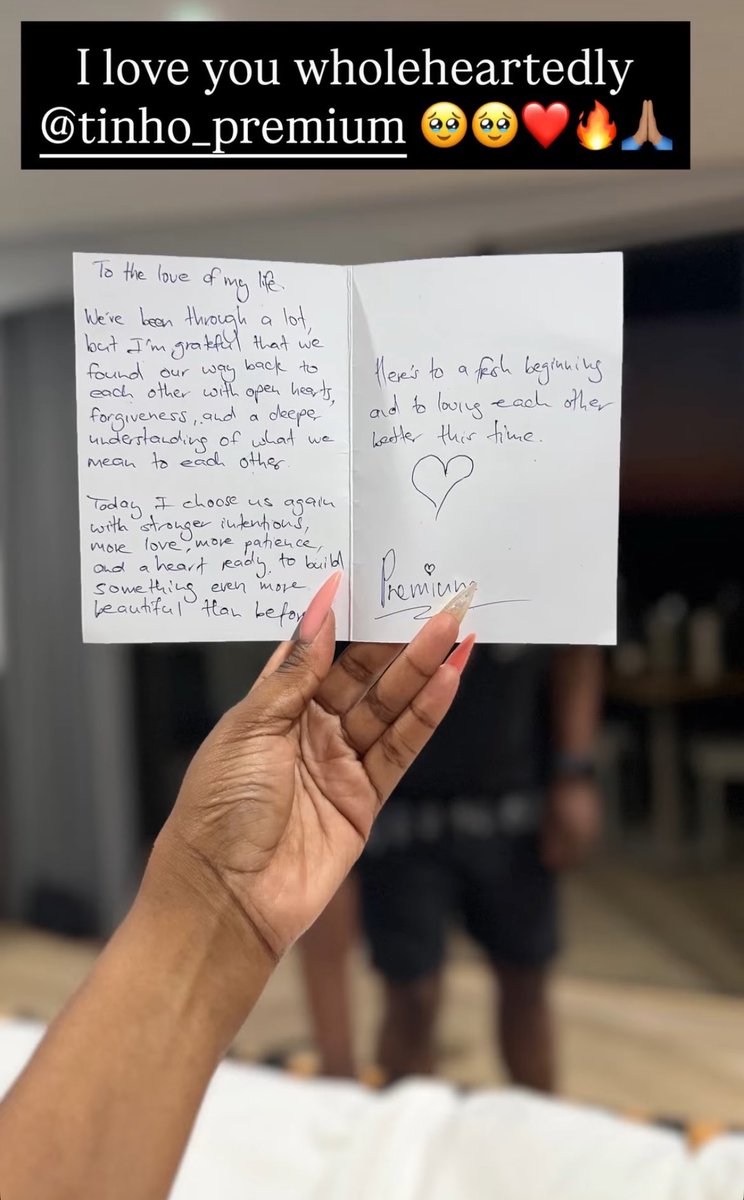 I love you wholeheartedly
@tinho_premium 🥹🥹❤️🔥🙏🏽
To the love of my life.
We've been through a lot,
but I'm grateful that we
found our way back to
each other with open hearts,
forgiveness, and a deeper
understanding of what we
mean to each other.
Today I choose us again
with stronger intentions,
more love, more patience,
and a heart ready to build
something even more
beautiful than before
Here's to a fresh beginning
and to loving each other
better this time.
Premium